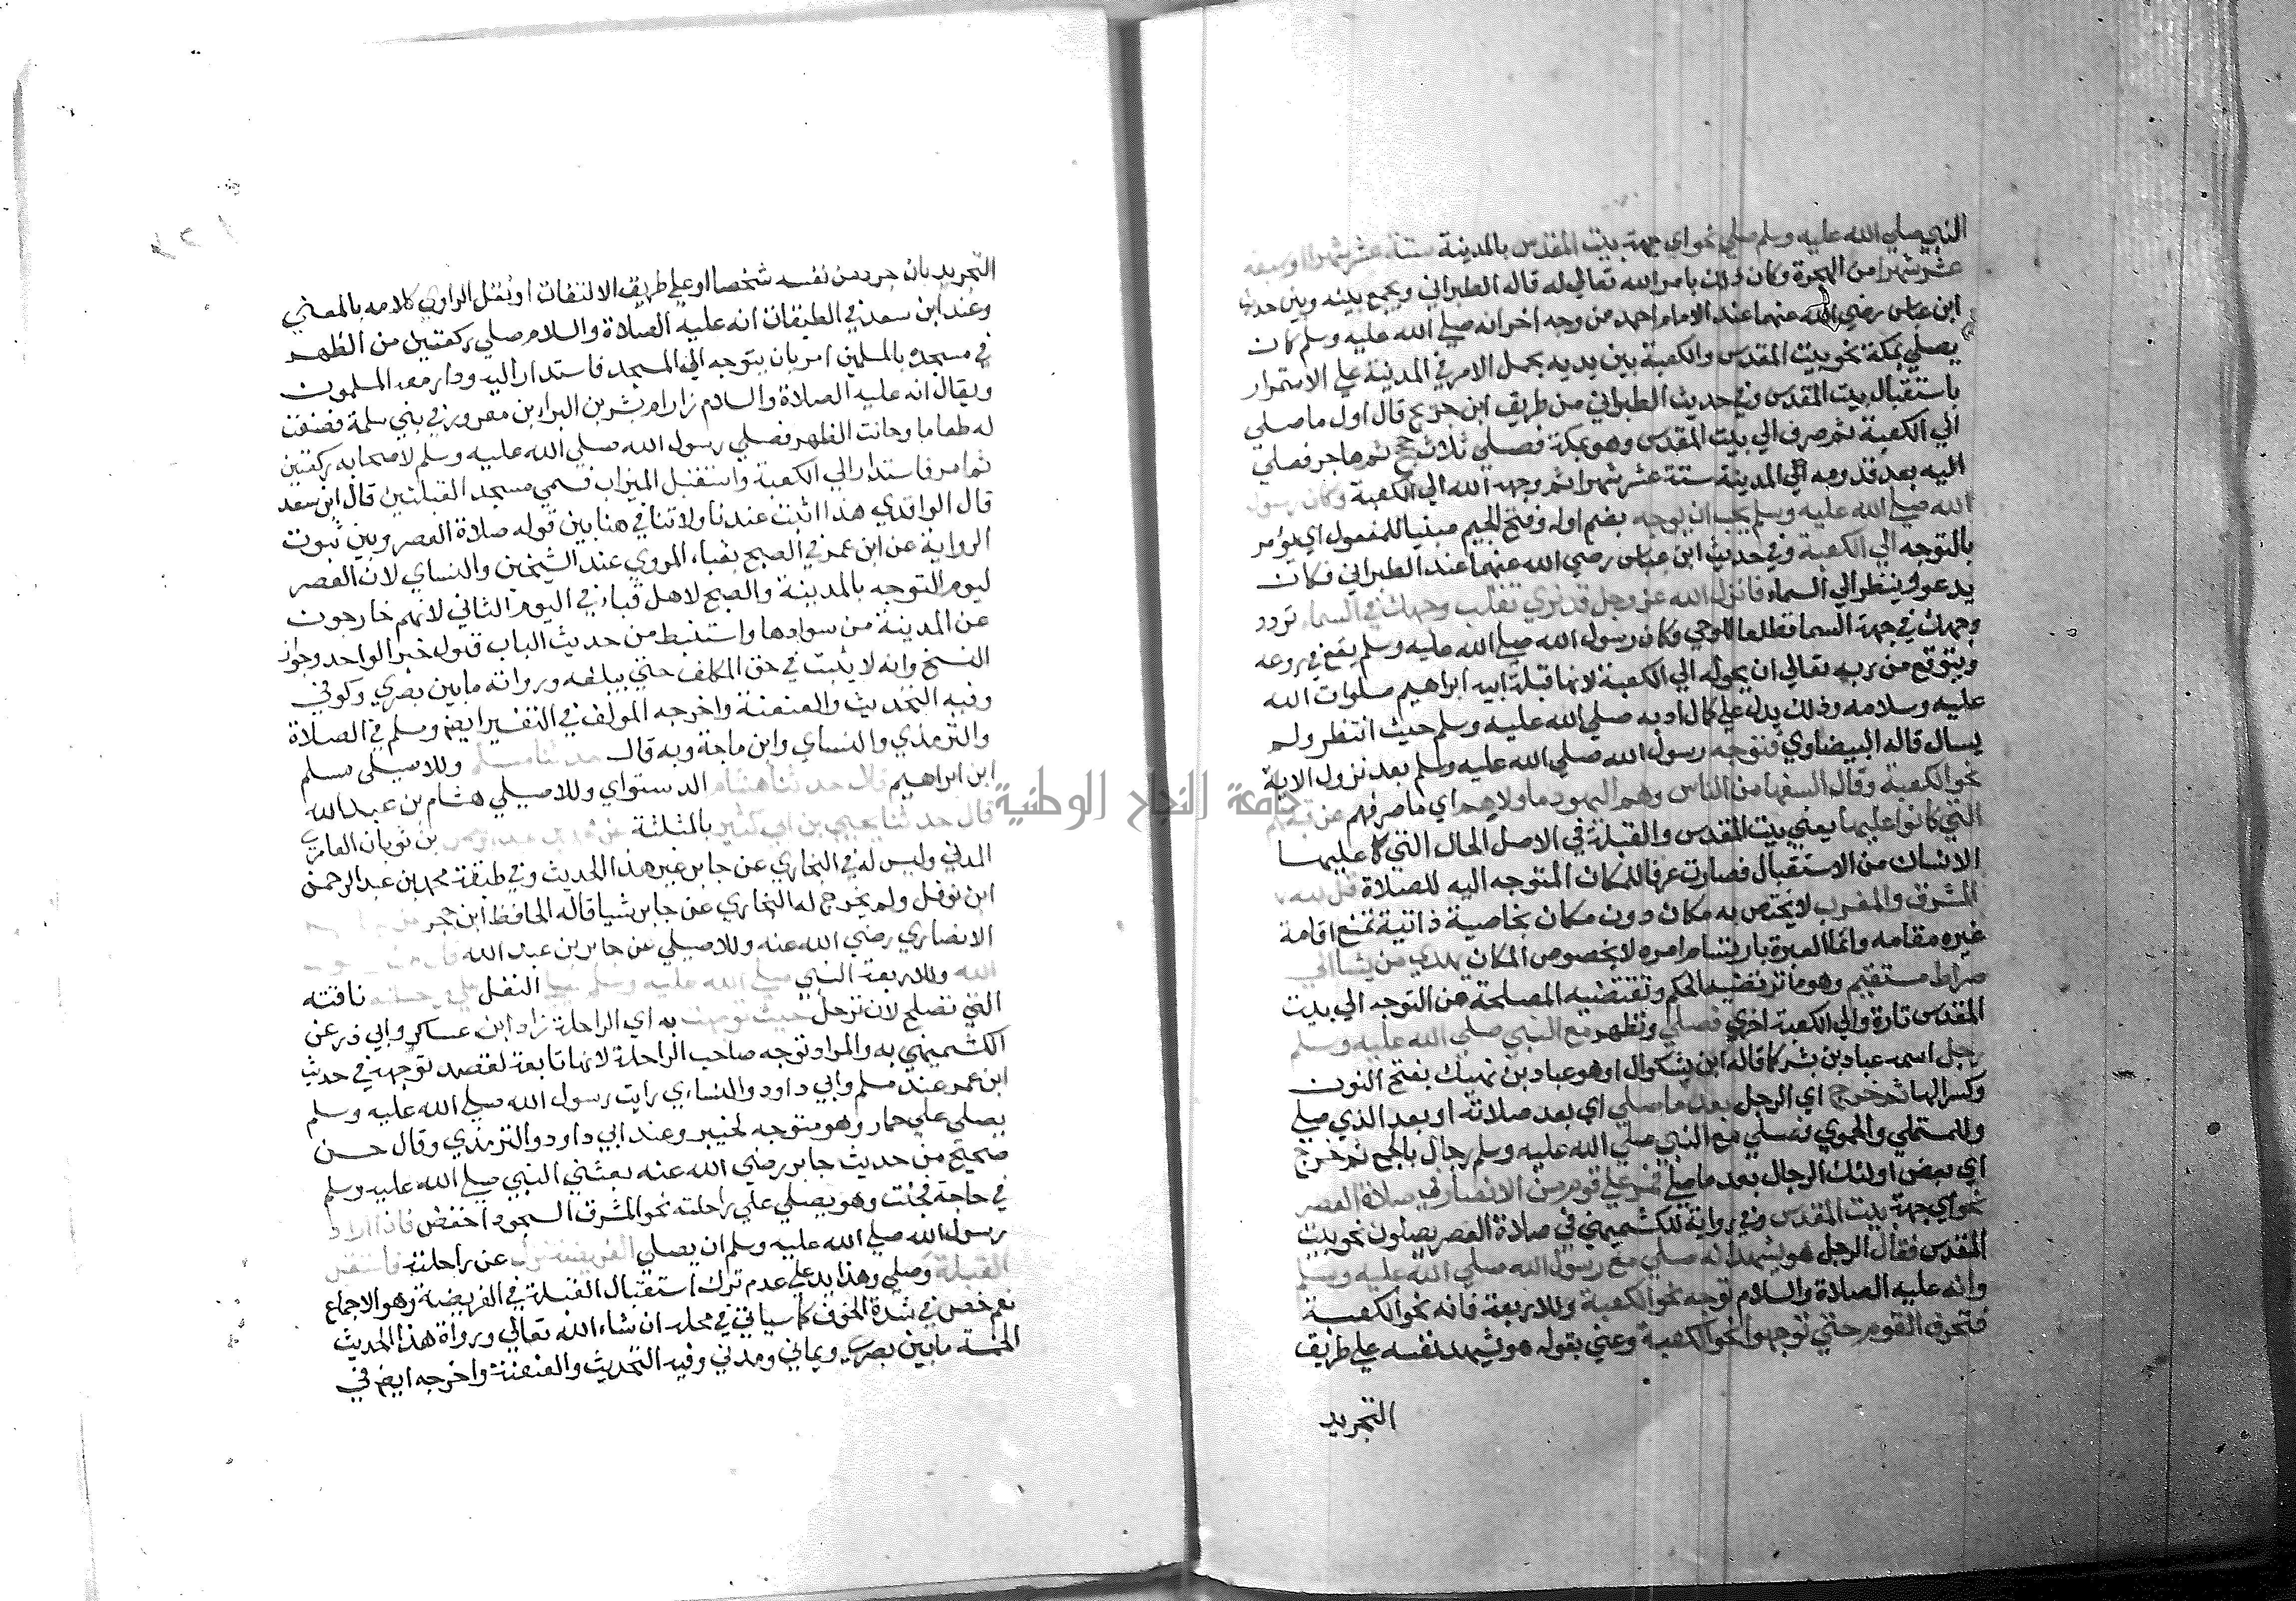 النبي صلي الله عليه وسلم صلي نحو اي جهة بيت المقدس بالمدينة ستة عشر شهرا او سبعة
عشر شهرا من الهجرة وكان ذلك بامر الله تعالي له قاله الطبراني ويجمع بينه وبين حديث
ابن عباس رضي الله عنهما عند الامام احمد من وجه اخر انه صلي الله عليه وسلم كان
يصلي بمكة نحو بيت المقدس والكعبة بين يديه بحمل الامر في المدينة علي الاستمرار
باستقبال بيت المقدس وفي حديث الطبراني من طريق ابن جريج قال اول ما صلي
الي الكعبة ثم صرف الي بيت المقدس وهو بمكة فصلي ثلاث حجج ثم هاجر فصلي
اليه بعد قدومه الي المدينة ستة عشر شهرا ثم وجهه الله الي الكعبة وكان رسول
الله صلي الله عليه وسلم يحب ان يوجه بضم اوله وفتح الجيم مبنيا للمفعول اي يؤمر
بالتوجه الي الكعبة وفي حديث ابن عباس رضي الله عنهما عند الطبراني فكان
يدعو وينظر الي السماء فانزل الله عز وجل قد نري تقلب وجهك في السماء تردد
وجهك في جهة السما تطلعا للوحي وكان رسول الله صلي الله عليه وسلم يقع في روعه
ويتوقع من ربه تعالي ان يحوله الي الكعبة لانها قبلة ابيه ابراهيم صلوات الله
عليه وسلامه وذلك يدل علي كمال ادبه صلي الله عليه وسلم حيث انتظر ولم
يسال قاله البيضاوي فتوجه رسول الله صلي الله عليه وسلم بعد نزول الاية
نحو الكعبة وقال السفها من الناس وهم اليهود ما ولاهم اي ما صرفهم عن قبلتهم
التي كانوا عليها يعني بيت المقدس والقبلة في الاصل الحال التي كا عليها
الانسان من الاستقبال فصارت عرفا للمكان المتوجه اليه للصلاة قل لله
المشرق والمغرب لا يختص به مكان دون مكان بخاصية ذاتية تمنع اقامة
غيره مقامه وانما العبرة بارتسام امره لا بخصوص المكان يهدي من يشا الي
صراط مستقيم وهو ما ترتضيه الحكم وتقتضيه المصلحة من التوجه الي بيت
المقدس تارة والي الكعبة اخري فصلي وتظهر مع النبي صلي الله عليه وسلم
رجل اسمه عباد بن بشر كما قاله ابن بشكوال او هو عباد بن نهيك بفتح النون
وكسر الها ثم خرج اي الرجل بعد ما صلي اي بعد صلاته او بعد الذي صلي
وللمستملي والحموي فصلي مع النبي صلي الله عليه وسلم رجال بالجمع ثم خرج
اي بعض اولئك الرجال بعد ما صلي فمر علي قوم من الانصار في صلاة العصر
نحو اي جهة بيت المقدس وفي رواية للكشميهني في صلاة العصر يصلون نحو بيت
المقدس فقال الرجل هو يشهد انه صلي مع رسول الله صلي الله عليه وسلم
وانه عليه الصلاة والسلام توجه نحو الكعبة وللاربعة فانه نحو الكعبة
فتحرف القوم حتي توجهوا نحو الكعبة وعني بقوله هو يشهد نفسه علي طريق
التجريد
التجريد بان جرد من نفسه شخصا او علي طريق الالتفات او نقل الراوي كلامه بالمعني
وعند ابن سعد في الطبقات انه عليه الصلاة والسلام صلي ركعتين من الظهر
في مسجده بالمسلمين امر بان يتوجه الي المسجد فاستدار اليه ودار معه المسلمون
ويقال انه عليه الصلاة والسلام زار ام بشر بن البراء بن معرور في بني سلمة فصنعت
له طعاما وحانت الظهر فصلي رسول الله صلي الله عليه وسلم لاصحابه ركعتين
ثم امر فاستدار الي الكعبة واستقبل الميزاب فسمي مسجد القبلتين قال ابن سعد
قال الواقدي هذا اثبت عندنا ولا تنافي هنا بين قوله صلاة العصر وبين ثبوت
الرواية عن ابن عمر في الصبح بقباء المروي عند الشيخين والنساي لان العصر
ليوم التوجه بالمدينة والصبح لاهل قباء في اليوم الثاني لانهم خارجون
عن المدينة من سوادها واستنبط من حديث الباب قبول خبر الواحد وجواز
النسخ وانه لا يثبت في حق المكلف حتي يبلغه ورواته ما بين بصري وكوفي
وفيه التحديث والعنعنة واخرجه المولف في التفسير ايضم وسلم في الصلاة
والترمذي والنساي وابن ماجة وبه قال حدثنا مسلم وللاصيلي مسلم
ابن ابراهيم قال حدثنا هشام الدستواي وللاصيلي هشام بن عبد الله
قال حدثنا يحيي بن ابي كثير بالمثلثة عن محمد بن عبد الرحمن بن ثوبان العامري
المدني وليس له في البخاري عن جابر غير هذا الحديث وفي طبقة محمد بن عبد الرحمن
ابن نوفل ولم يخرج له البخاري عن جابر شيا قاله الحافظ ابن حجر
الانصاري رضي الله عنه وللاصيلي عن جابر بن عبد الله قال
الله وللاربعة النبي صلي الله عليه وسلم يصلي النفل علي راحلته ناقته
التي تصلح لان ترحل حيث توجهت به اي الراحلة زاد ابن عساكر وابي ذر عن
الكشميهني به والمراد توجه صاحب الراحلة لانها تابعة لقصد توجهه في حديث
ابن عمر عند مسلم وابي داود والنساءي رايت رسول الله صلي الله عليه وسلم
يصلي علي حمار وهو متوجه لخيبر وعند ابي داود والترمذي وقال حسن
صحيح من حديث جابر رضي الله عنه بعثني النبي صلي الله عليه وسلم
في حاجة فجئت وهو يصلي علي راحلته نحو المشرق السجود اخفض فاذا اراد
رسول الله صلي الله عليه وسلم ان يصلي الفريضة نزل عن راحلته فاستقبل
القبلة وصلي وهذا يدعلي عدم ترك استقبال القبلة في الفريضة وهو الاجماع
نعم خص في شدة الخوف كما سياتي في محله ان شاء الله تعالي ورواة هذا الحديث
الخمسة ما بين بصري ويماني ومدني وفيه التحديث والعنعنة واخرجه ايضم في
جامعة النجاح الوطنية